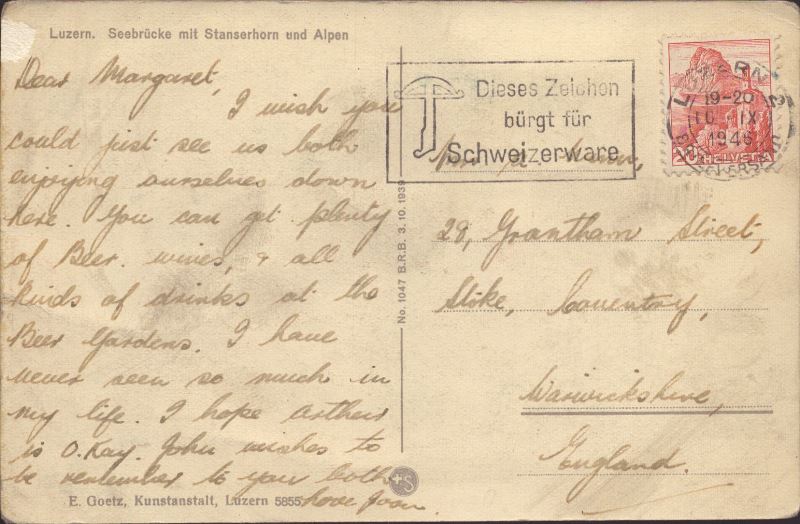 Luzern. Seebrücke mit Stanserhorn und Alpen
Dear Margaret,
I wish you
could just see us both
enjoying ourselves down
here. You can get plenty
of Beer. wines, & all
kinds of drinks at the
Beer Gardens. I have
never seen so much in
my life. I hope Arthur
is O.Kay. John wishes to
be remember to you both
love Joan.
E. Goetz, Kunstanstalt, Luzern 5855
No. 1047 B.R.B. 3.10.1939
+S
Dieses Zeichen
bürgt für
Schweizerware
LUZERN 2
19-20
10. IX
1946
HELVETIA
28, Grantham Street,
Stoke, Coventry,
Warwickshire,
England.